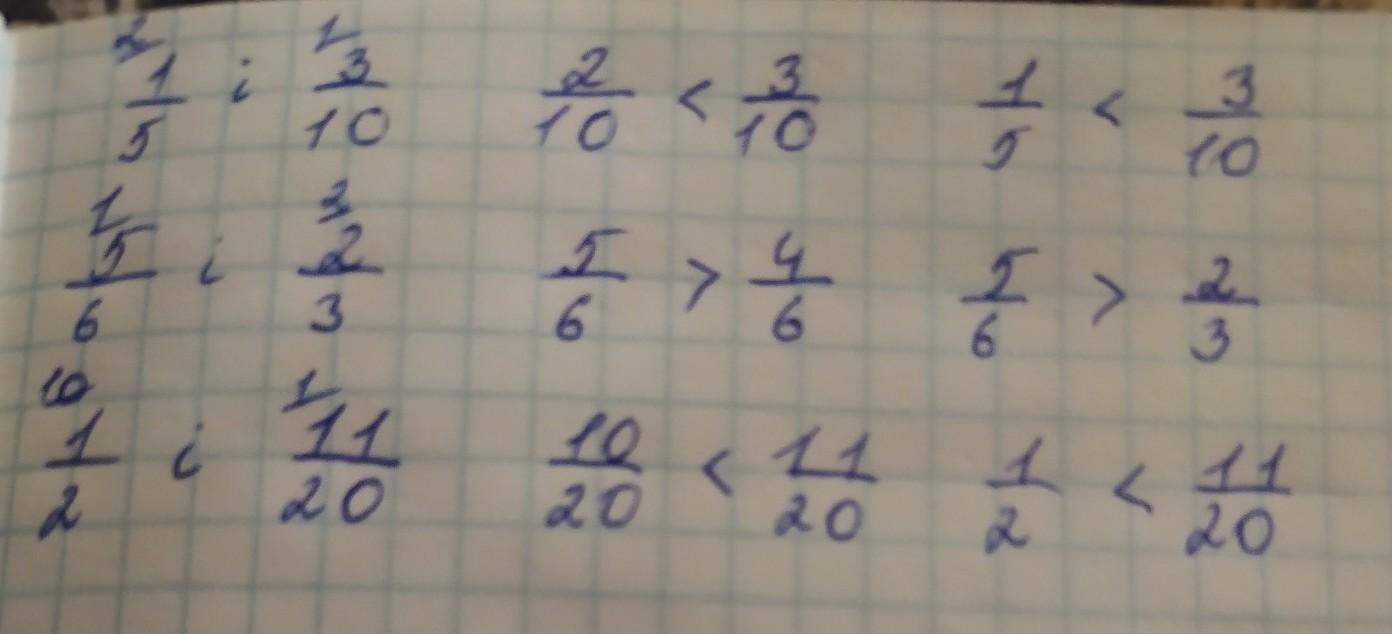 2 1/5 i 1 3/10 2/10 < 3/10 1/5 < 3/10
1 5/6 i 2 2/3 5/6 > 4/6 5/6 > 2/3
10 1/2 i 1 11/20 10/20 < 11/20 1/2 < 11/20